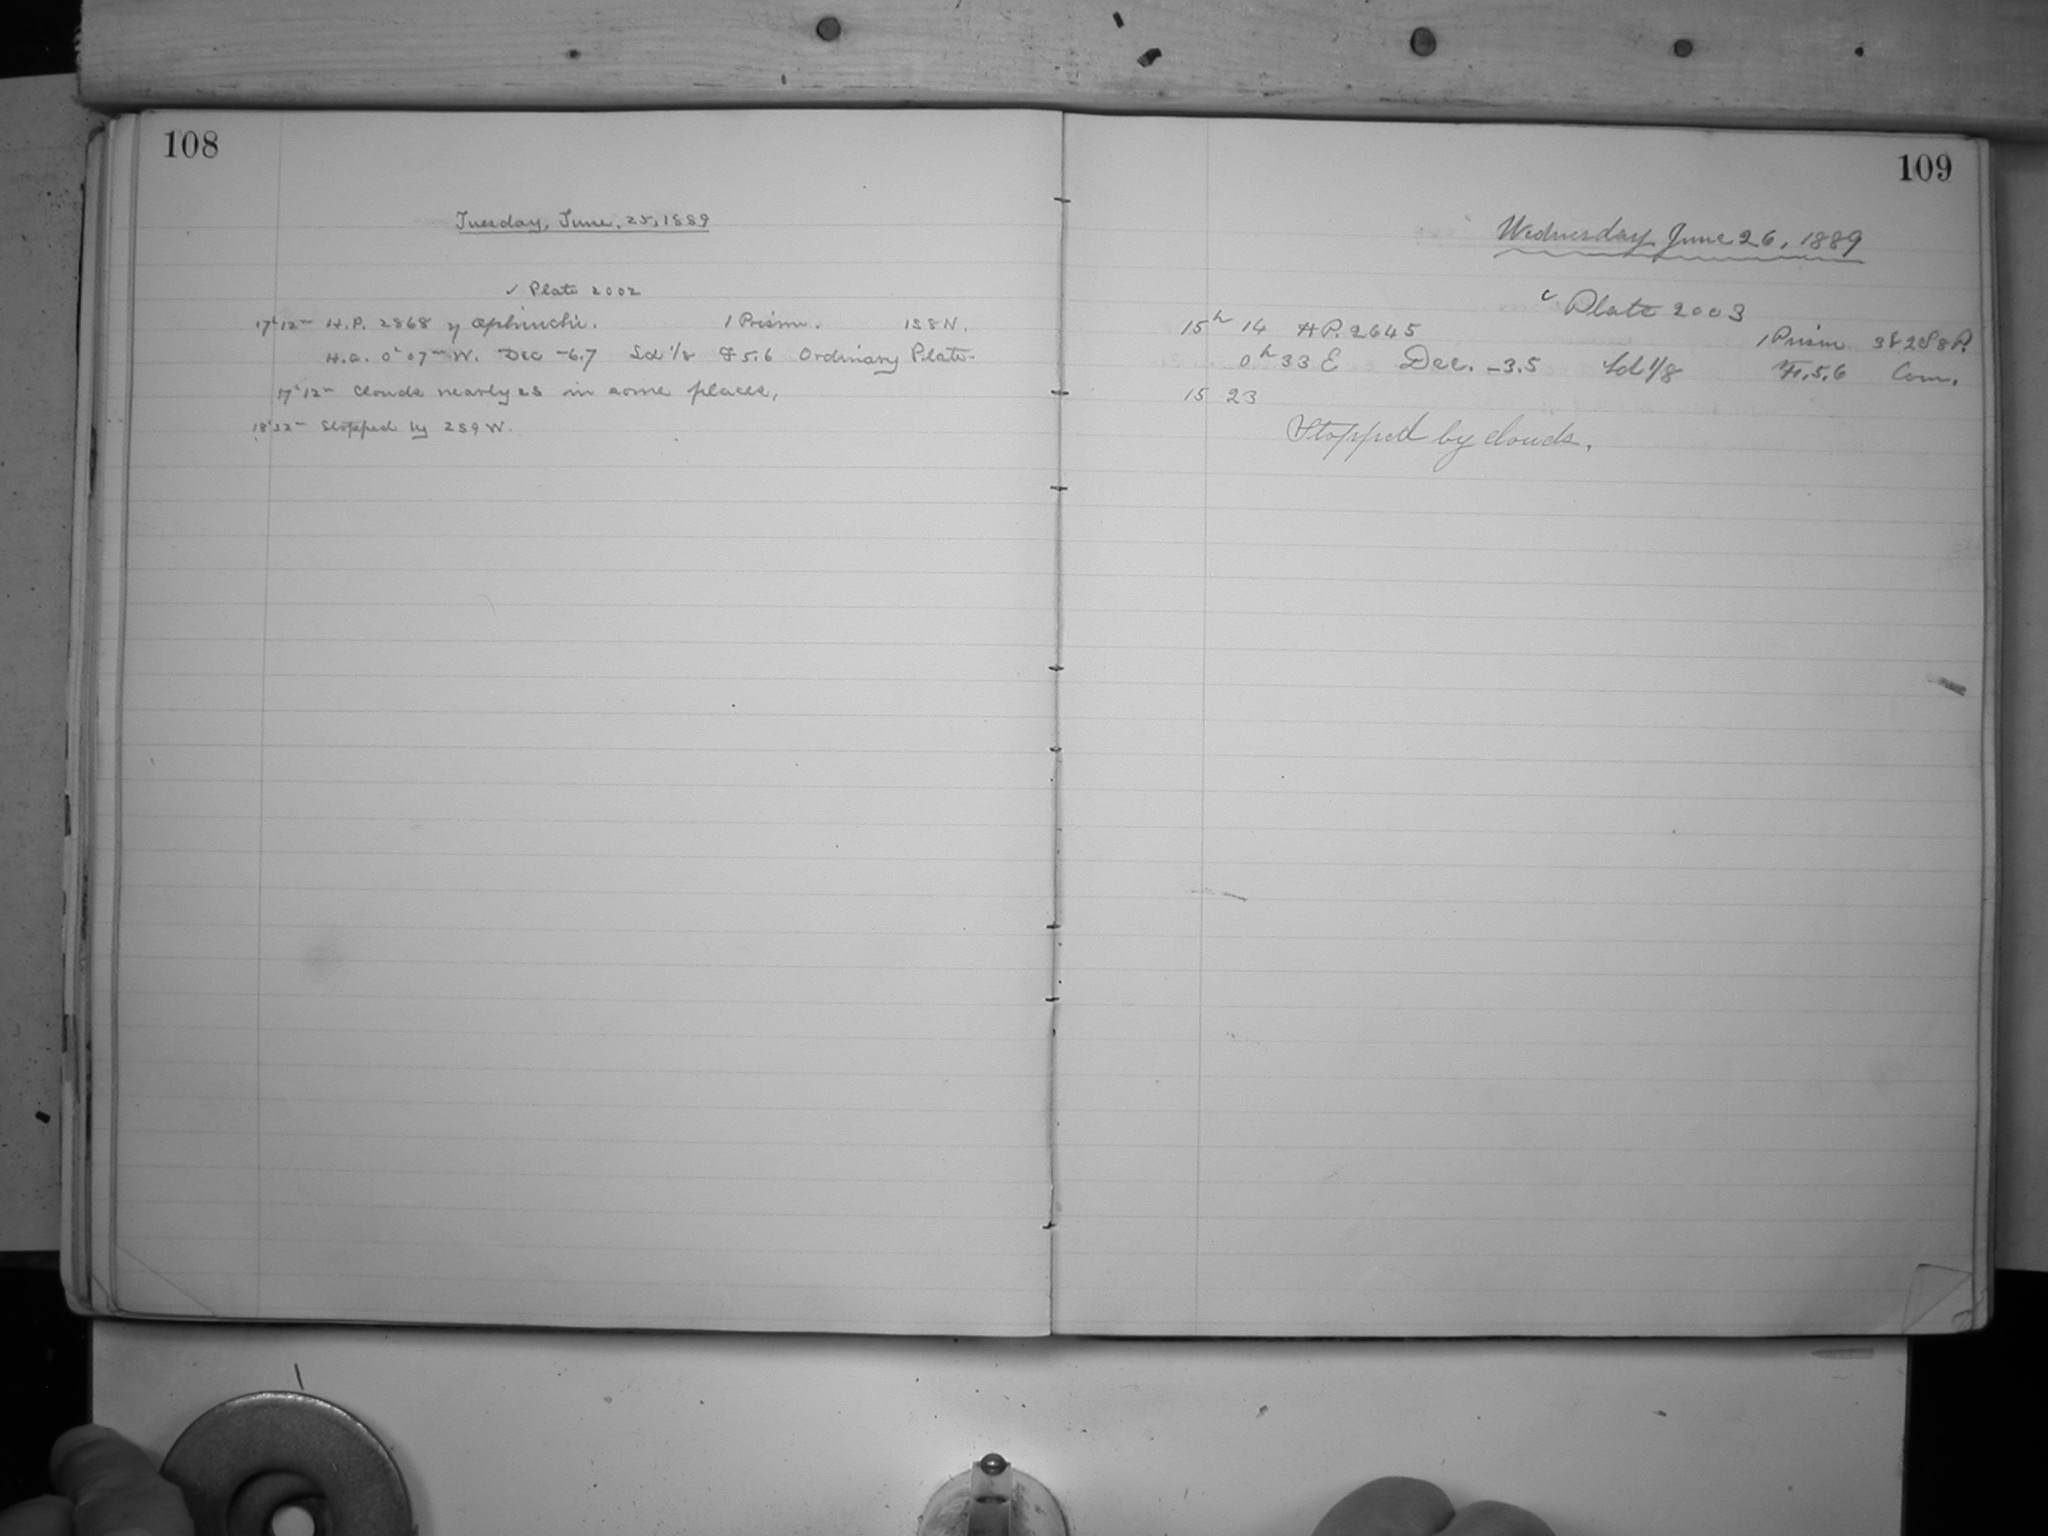 108
Tuesday, June. 25, 1889
✓ Plate 2002
17h12m H.P. 2868 η Ophiuchi. 1 Prism. 158N.
H.a. 0h07mW. Dec -6.7 Sd 1/8 F 5.6 Ordinary Plate.
17h12m Clouds nearly 25 in some places,
18h32m Stopped by 259W.
109
Wednesday June 26, 1889
Plate 2003
15h 14 H.P. 2645 1 Prism
0h 33 E Dec. -3.5 Sd 1/8 Fr. 5.6 Com.
15 23
Stopped by clouds.